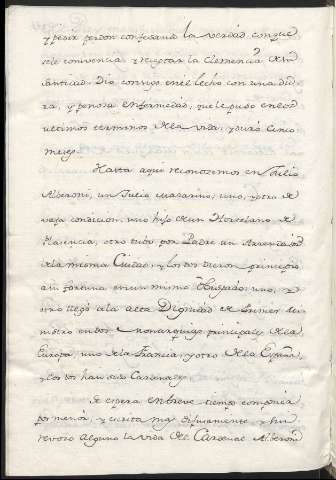 y pedir perdon confesando la verdad con que
se le convencia, y aceptar la Clemencia de su
Santidad. Dio consigo en el lecho con una
ra, y penosa enfermedad, que le puso en los
ultimos terminos de la vida, y duró cinco
meses.
Hasta aqui reconocemos en Julio
Alberoni, un Julio Mazarino; uno, y otro de
vaja condicion, uno hijo de un Hortelano de
Plasencia, otro tubo por Padre un
de la misma Ciudad, y los dos dieron principio
a su fortuna en un mismo uno, y
otro llegó a la alta Dignidad de Primer Mi
nistro en dos Monarquias principales de la
Europa, uno de la Francia, y otro de la España,
y los dos han sido Cardenales.
Se espera en breve tiempo
por menor, y escrita muy difusamente, y sin
reboso alguno la vida del Cardenal Alberoni